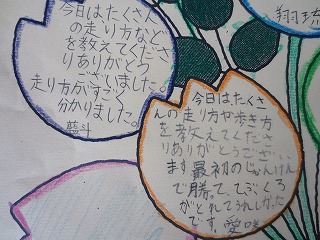 今日はたくさん
の走り方などを
教えてくださ
りありがとう
ございました。
走り方がすごく
分かりました。
藍斗
今日はたくさ
んの走り方や歩き方
を教えてくださ
りありがとうござい
ます。最初のじゃんけん
で勝って、てぶくろ
がとれてうれしかった
です。愛咲
翔琉